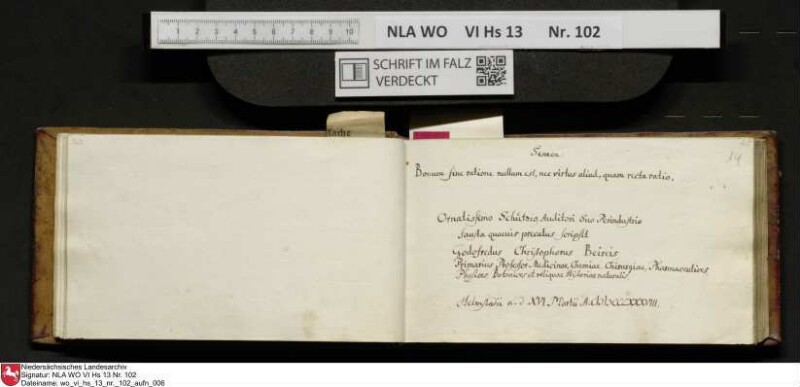 1 2 3 4 5 6 7 8 9 10
NLA WO VI Hs 13 Nr. 102
SCHRIFT IM FALZ
VERDECKT
Seneca
14
Bonum sine ratione nullum est, nec virtus aliud, quam recta ratio.
Ornatissimo Schützio, Auditori suo Perindustrio
fausta quaevis precatus scripsit
Godofredus Christophorus Beireis
Primarius Professor Medicinae, Chemiae, Chirurgiae, Pharmaceutices
Physices Botanices et reliquae Historiae naturalis.
Helmstadii a. d. XVI
Niedersächsisches Landesarchiv
Signatur: NLA WO VI Hs 13 Nr. 102
Dateiname: wo_vi_hs_13_nr._102_aufn_006